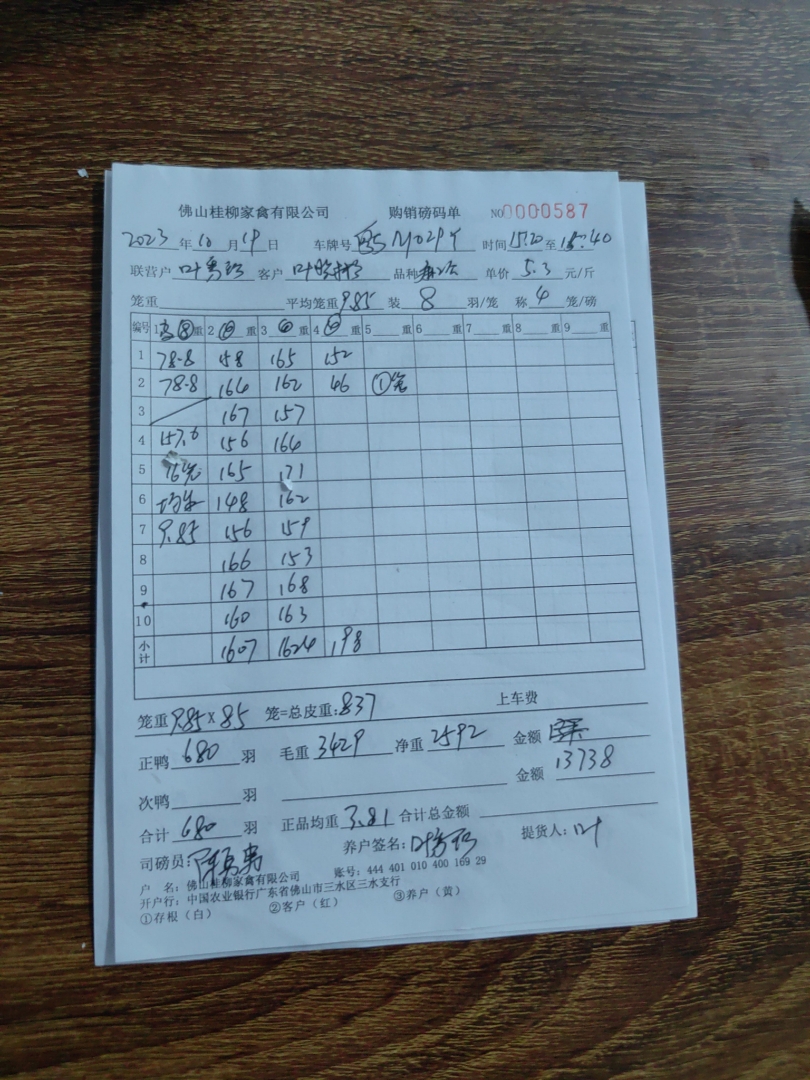 佛山桂柳家禽有限公司 购销磅码单 NO 0000587
2023 年 10 月 19 日 车牌号 M029Y 时间 15:20 至 15:40
联营户 叶 客户 叶 品种 单价 5.3 元/斤
笼重 平均笼重 9.85 装 8 羽/笼 称 4 笼/磅
编号 1 重 2 ④ 重 3 ④ 重 4 ④ 重 5 重 6 重 7 重 8 重 9 重
1 78.8 158 165 152
2 78.8 164 162 46 ①笼
3 167 157
4 157.6 156 164
5 16笼 165 171
6 均重 148 162
7 9.85 156 159
8 166 153
9 167 168
10 160 163
小计 1607 1624 198
笼重 9.85 × 85 笼=总皮重: 837 上车费
正鸭 680 羽 毛重 3429 净重 2592 金额
金额 13738
次鸭 羽
合计 680 羽 正品均重 3.81 合计总金额
司磅员: 陈 养户签名: 叶 提货人: 叶
户 名: 佛山桂柳家禽有限公司 账号: 444 401 010 400 169 29
开户行: 中国农业银行广东省佛山市三水区三水支行
①存根(白) ②客户(红) ③养户(黄)